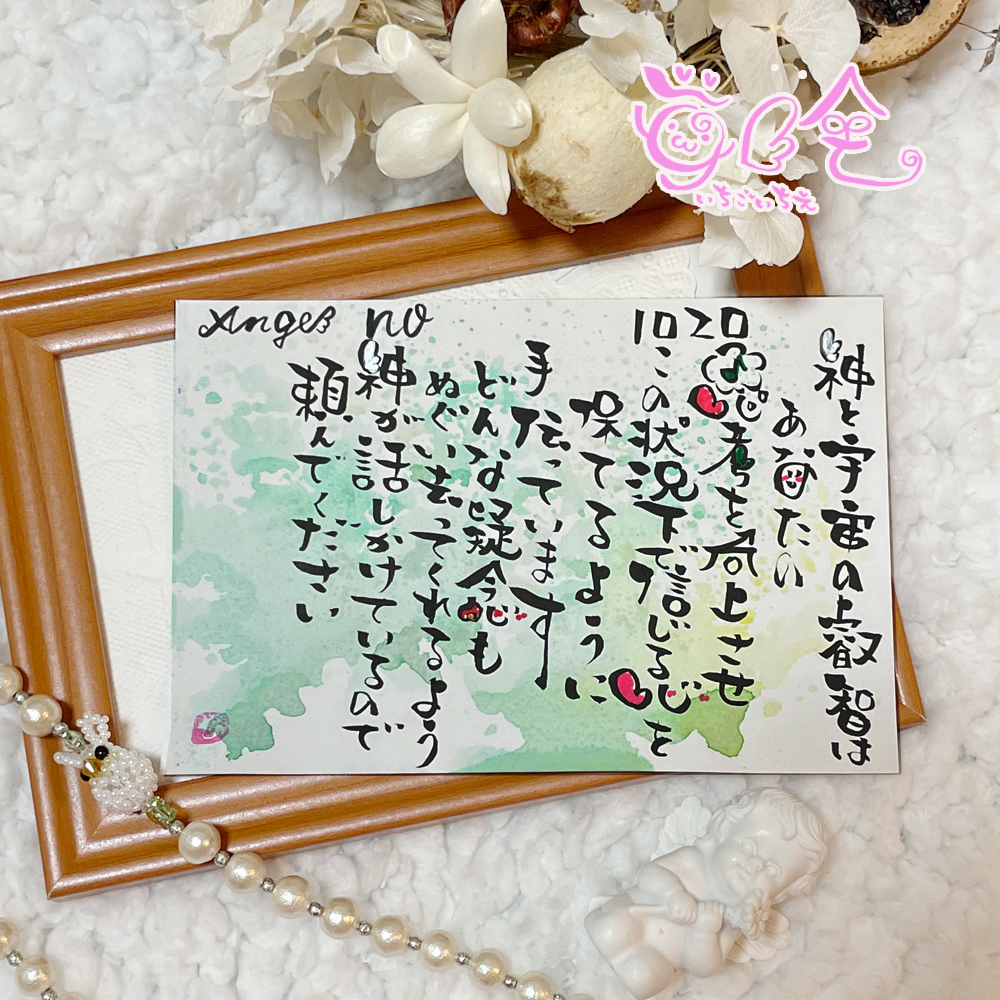 Angel no 1020
神と宇宙の叡智は
あなたの
思考を向上させ
この状況下で信じる心を
保てるように
手伝っています
どんな疑念も
ぬぐい去ってくれるよう
神が話しかけているので
頼んでください
いちごいちえ